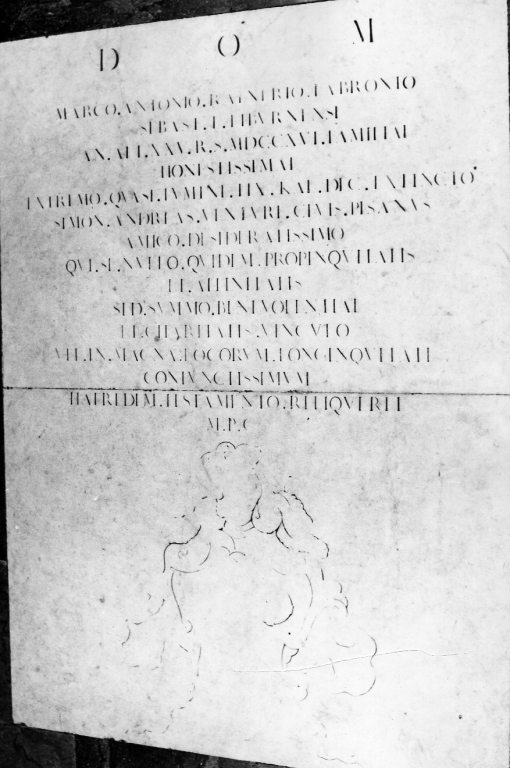 D O M
MARCO. ANTONIO. RAYNERIO. FABRONIO
SEBAST. F. LIBVRNENSI
AN. AET. XXV. R. S. MDCCXVI. FAMILIAE
HONESTISSIMAE
EXTREMO. QVASI. LVMINE. IIX. KAL. DEC. EXTINCTO
SIMON. ANDREAS. VENTVRI. CIVIS. PISANVS
AMICO. DESIDERATISSIMO
QVI. SE. NVLLO. QVIDEM. PROPINQVITATIS
ET. AFFINITATIS
SED. SVMMO. BENEVOLENTIAE
ET. CHARITATIS. VINCVLO
VEL. IN. MAGNA. LOCORVM. LONGINQVITATE
CONIVNCTISSIMVM
HAEREDEM. TESTAMENTO. RELIQVERIT
M. P. C